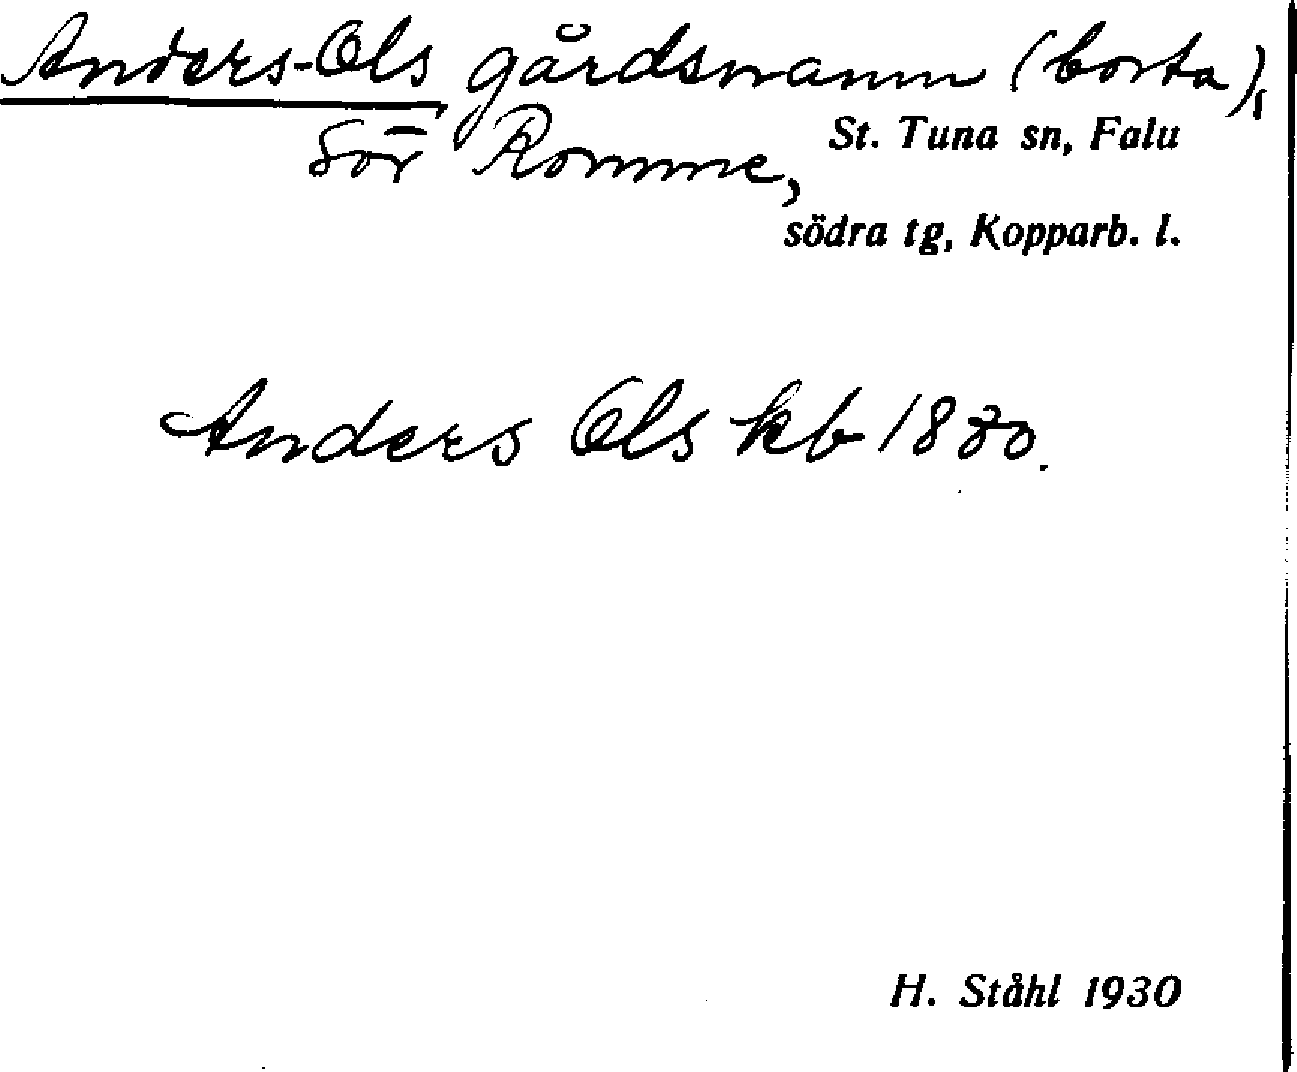 Anders-Ols gårdsnamn (borta),
Sör Romme, St. Tuna sn, Falu
södra tg, Kopparb. l.
Anders Ols kb 1830.
H. Ståhl 1930